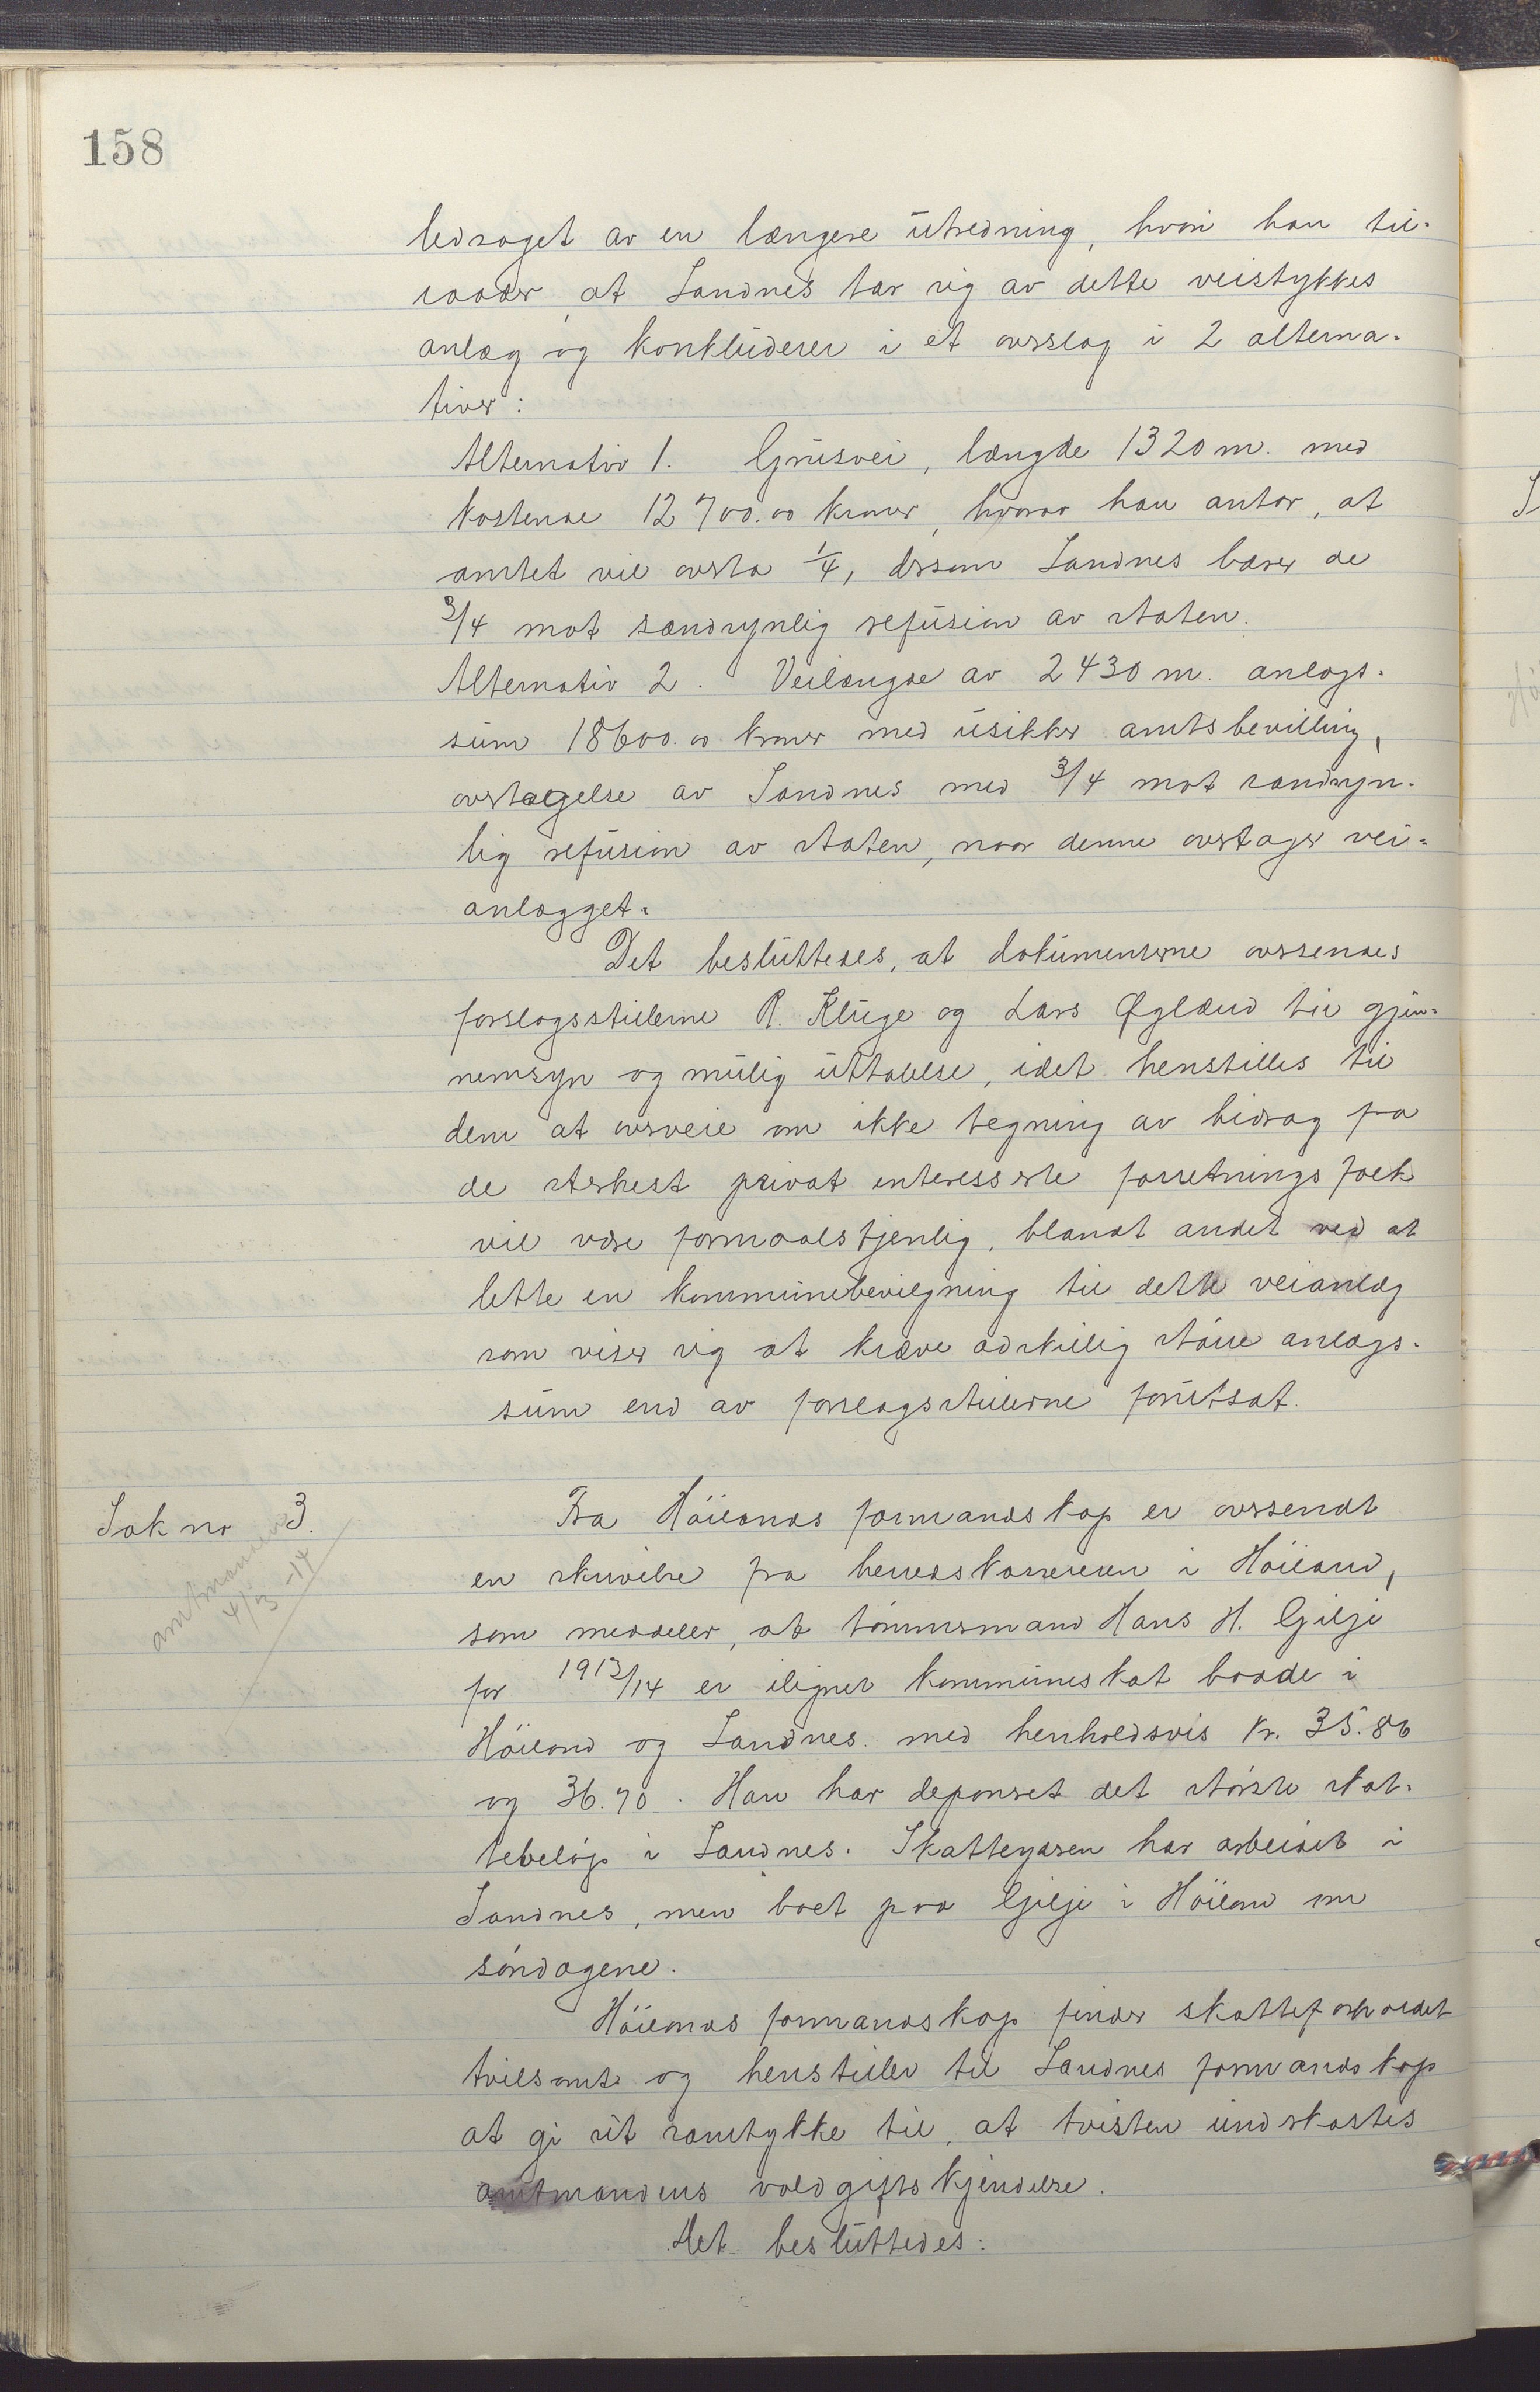 158
ledsaget av en længere utredning, hvori han til-
raader, at Sandnes tar sig av dette veistykkes
anlæg og konkluderer i et overslag i 2 alterna-
tiver:
Alternativ 1. Grusvei, længde 1320 m. med
kostende 12700.00 kroner, hvorav han antar, at
amtet vil overta 1/4, dersom Sandnes bærer de
3/4 mot sandsynlig refusion av staten.
Alternativ 2. Veilængde av 2430 m. anlægs-
sum 18600.00 kroner med usikker amtsbevilling,
overtagelse av Sandnes med 3/4 mot sandsyn-
lig refusion av staten, naar denne overtager vei-
anlægget.
Det besluttedes, at dokumenterne oversendes
forslagsstillerne R. Kluge og Lars Øglænd til gjen-
nemsyn og mulig uttalelse, idet henstilles til
dem at overveie om ikke tegning av bidrag fra
de sterkest privat interesserte forretningsfolk
vil være formaalstjenlig, blandt andet ved at
lette en kommunebevilgning til dette veianlæg
som viser sig at kræve adskillig større anlægs-
sum end av forslagsstillerne forutsat.
Sak no 3.
amtmanden
4/3 -14
Fra Höilands formandskap er oversendt
en skrivelse fra herredskassereren i Höiland,
som meddeler, at tömmermand Hans H. Gilje
for 1913/14 er ilignet kommuneskat baade i
Höiland og Sandnes med henholdsvis kr. 35.86
og 36.70. Han har deponeret det störste skat-
tebelöp i Sandnes. Skatteyderen har arbeidet i
Sandnes, men boet paa Gilje i Höiland om
söndagene.
Höilands formandskap finder skatteforholdet
tvilsomt og henstiller til Sandnes formandskap
at gi sit samtykke til, at tvisten underkastes
amtmandens voldgiftskjendelse.
Det besluttedes: